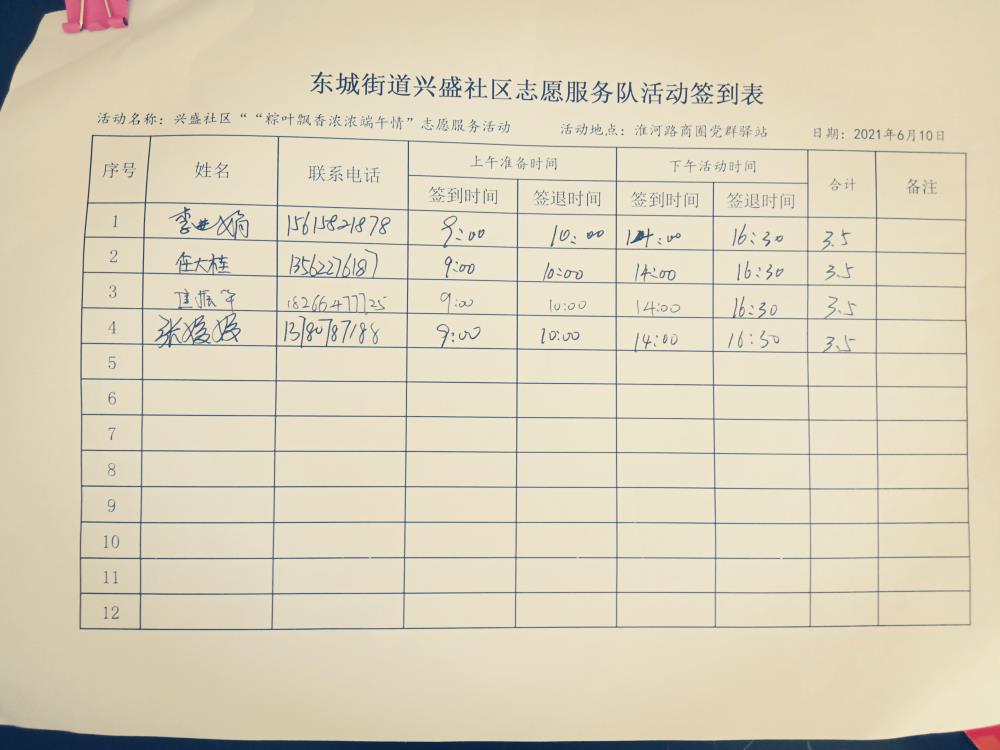 东城街道兴盛社区志愿服务队活动签到表
活动名称：兴盛社区““粽叶飘香浓浓端午情”志愿服务活动 活动地点：淮河路商圈党群驿站 日期：2021年6月10日
序号 姓名 联系电话 上午准备时间 下午活动时间 合计 备注
签到时间 签退时间 签到时间 签退时间
1 15615821878 9:00 10:00 14:00 16:30 3.5
2 任大桂 13562276187 9:00 10:00 14:00 16:30 3.5
3 18266477725 9:00 10:00 14:00 16:30 3.5
4 张媛媛 13780787188 9:00 10:00 14:00 16:30 3.5
5
6
7
8
9
10
11
12